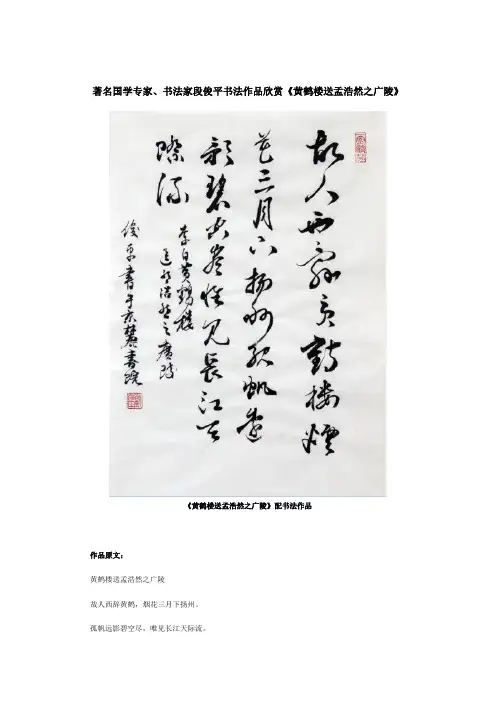 著名国学专家、书法家段俊平书法作品欣赏《黄鹤楼送孟浩然之广陵》
故人西辞黄鹤楼煙
花三月下扬州孤帆遠
影碧空尽惟见長江天
際流
李白黄鹤楼
送孟浩然之廣陵
俊平書于京麓書院
《黄鹤楼送孟浩然之广陵》配书法作品
作品原文：
黄鹤楼送孟浩然之广陵
故人西辞黄鹤，烟花三月下扬州。
孤帆远影碧空尽，唯见长江天际流。